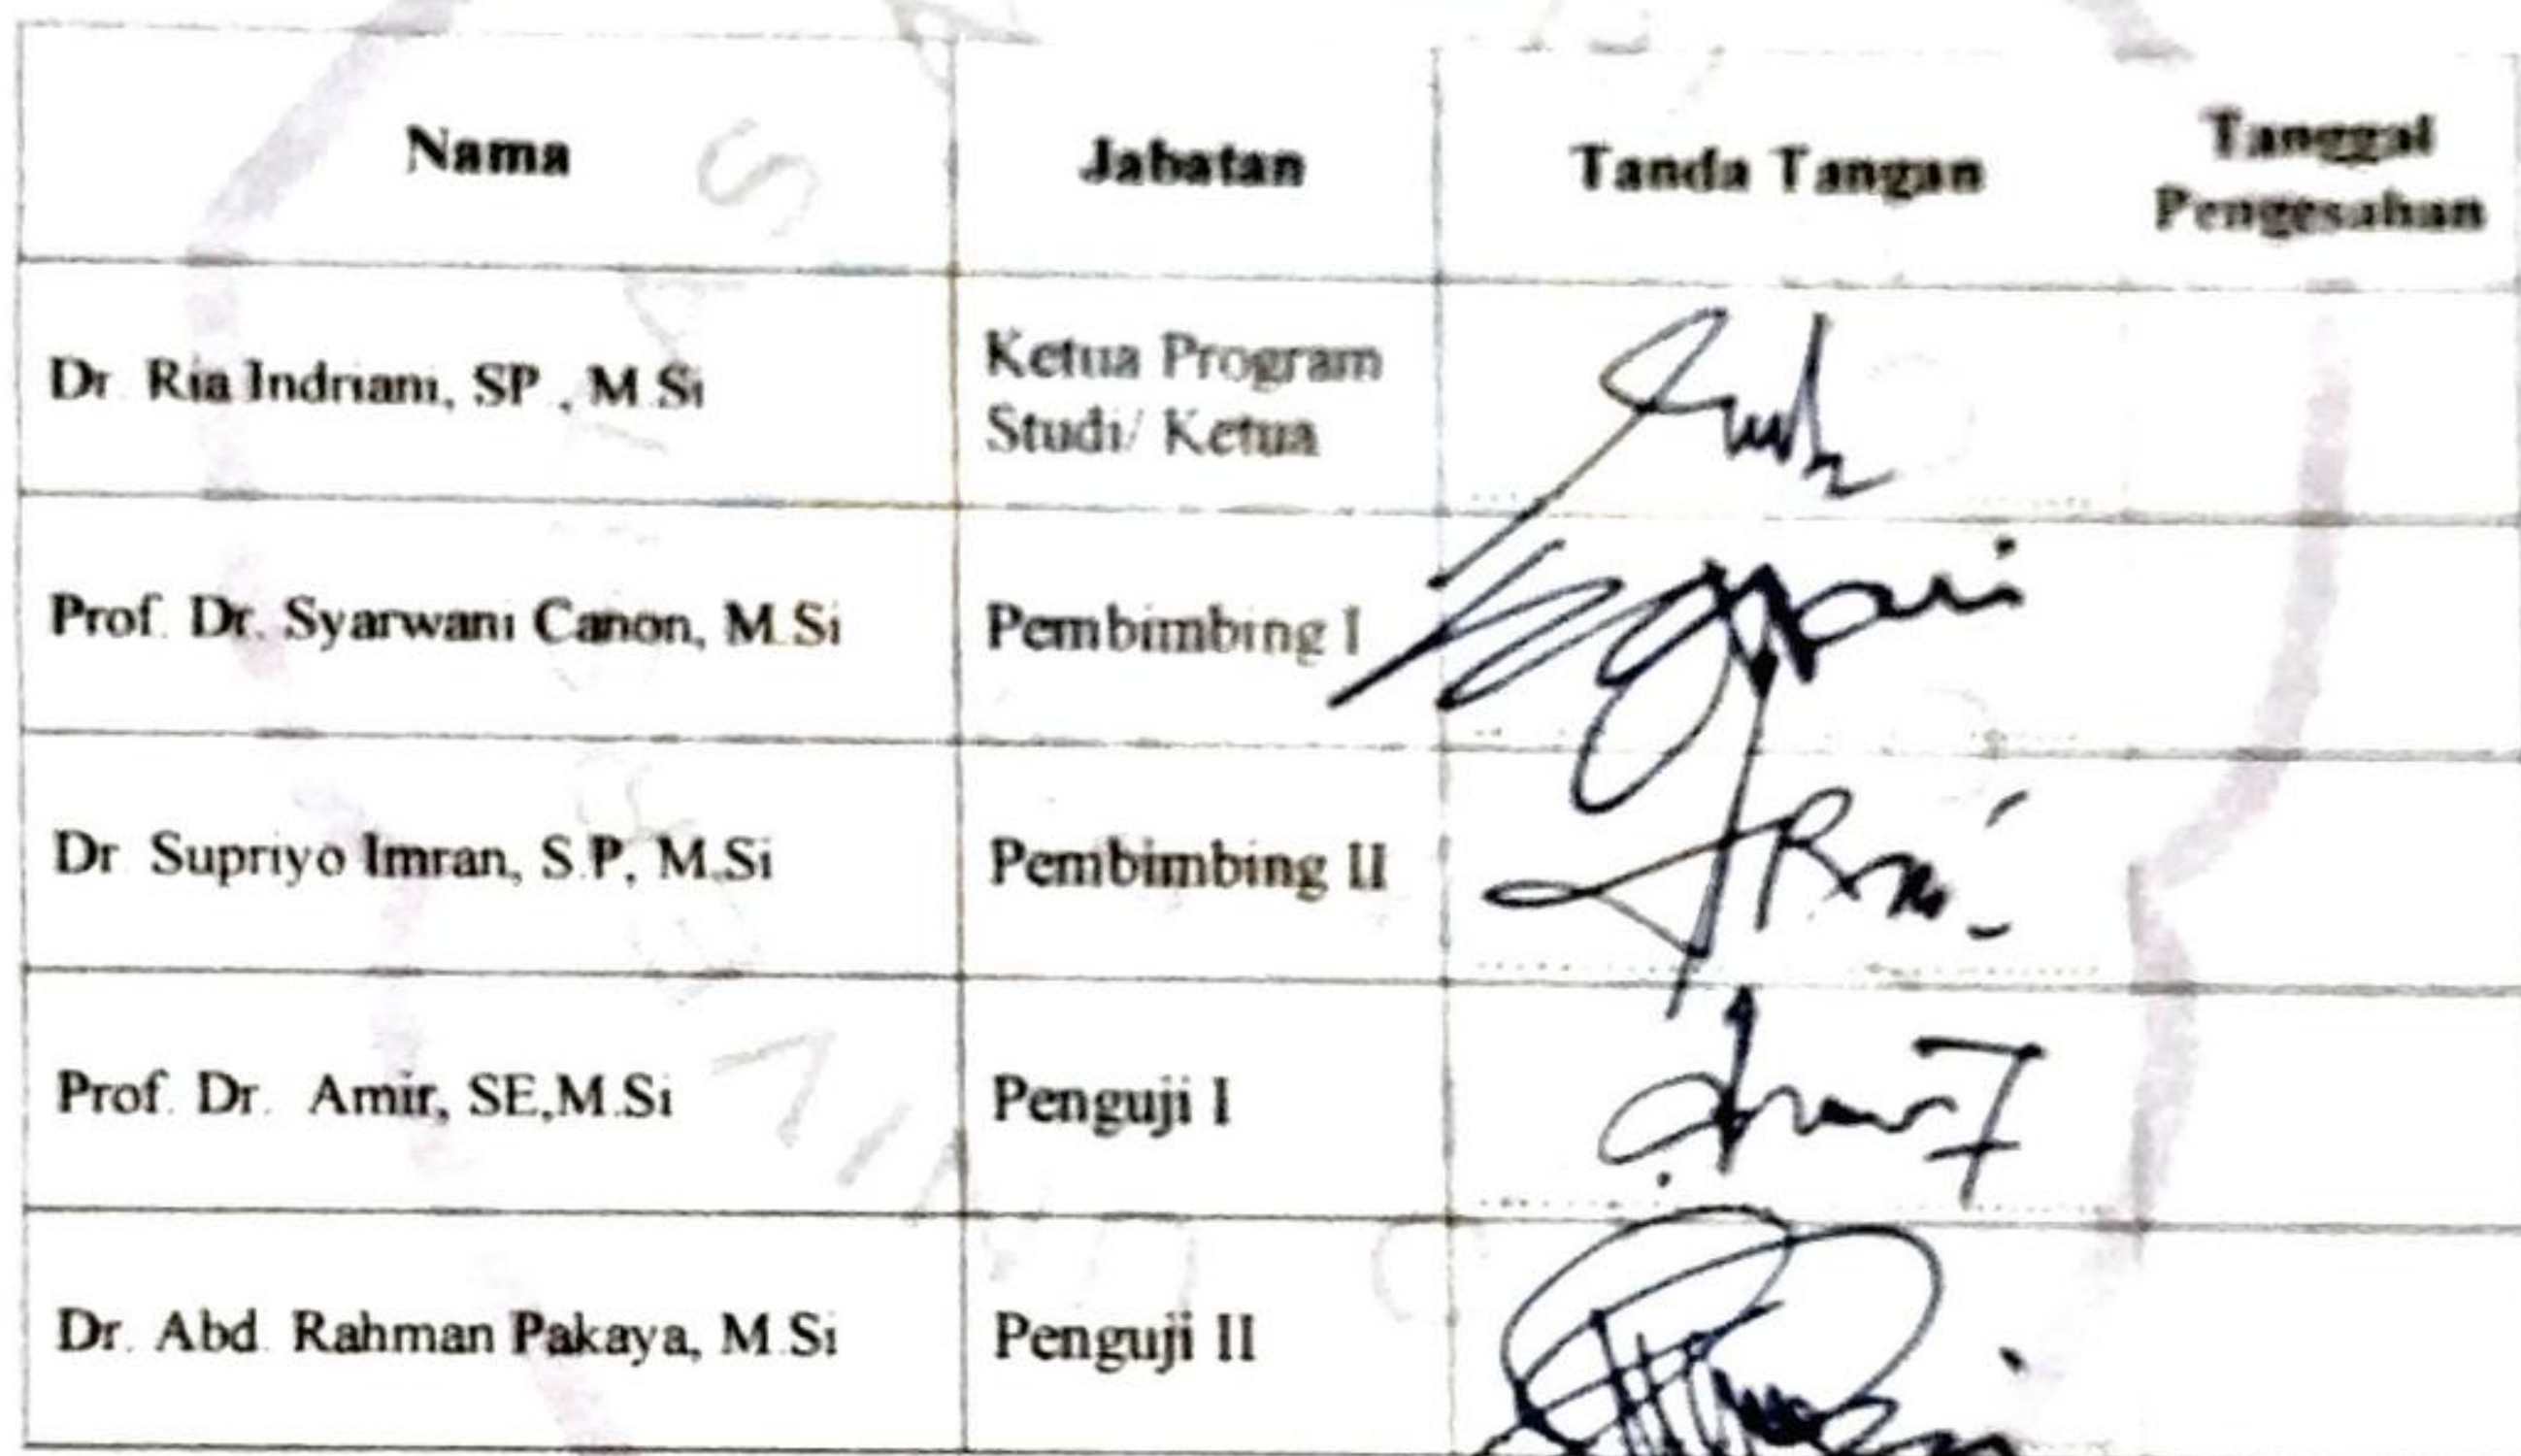 Nama Jabatan Tanda Tangan Tanggal
Pengesahan
Dr. Ria Indriani, SP., M.Si Ketua Program
Studi/ Ketua
Prof. Dr. Syarwani Canon, M.Si Pembimbing I
Dr. Supriyo Imran, S.P, M.Si Pembimbing II
Prof. Dr. Amir, SE,M.Si Penguji I
Dr. Abd. Rahman Pakaya, M.Si Penguji II